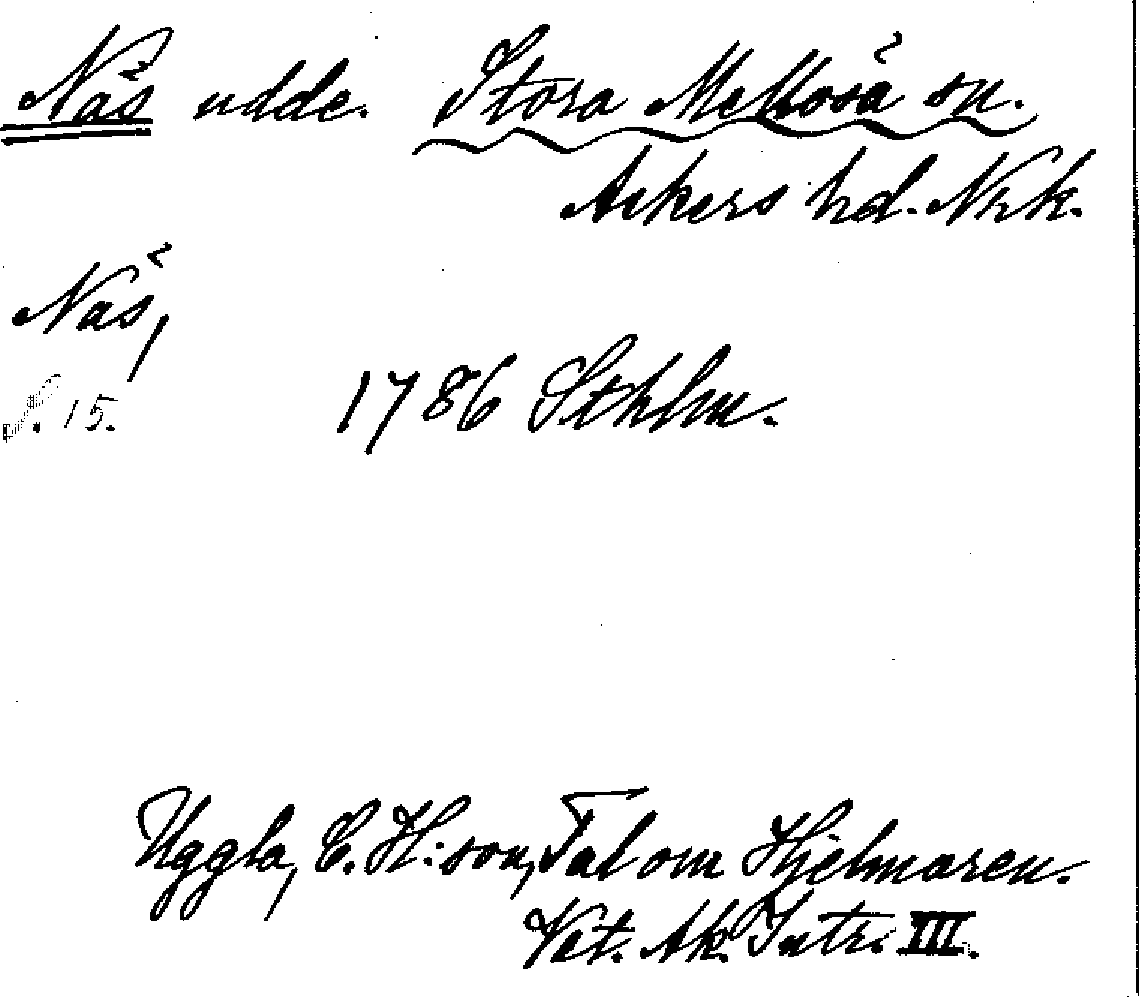 Näs udde. Stora Mellösa sn.
Askers hd. Nrk.
Näs,
S. 15.
1786 Sthlm.
Uggla, C. H:son, Tal om Hjelmaren.
Vet. Ak. Intr. III.